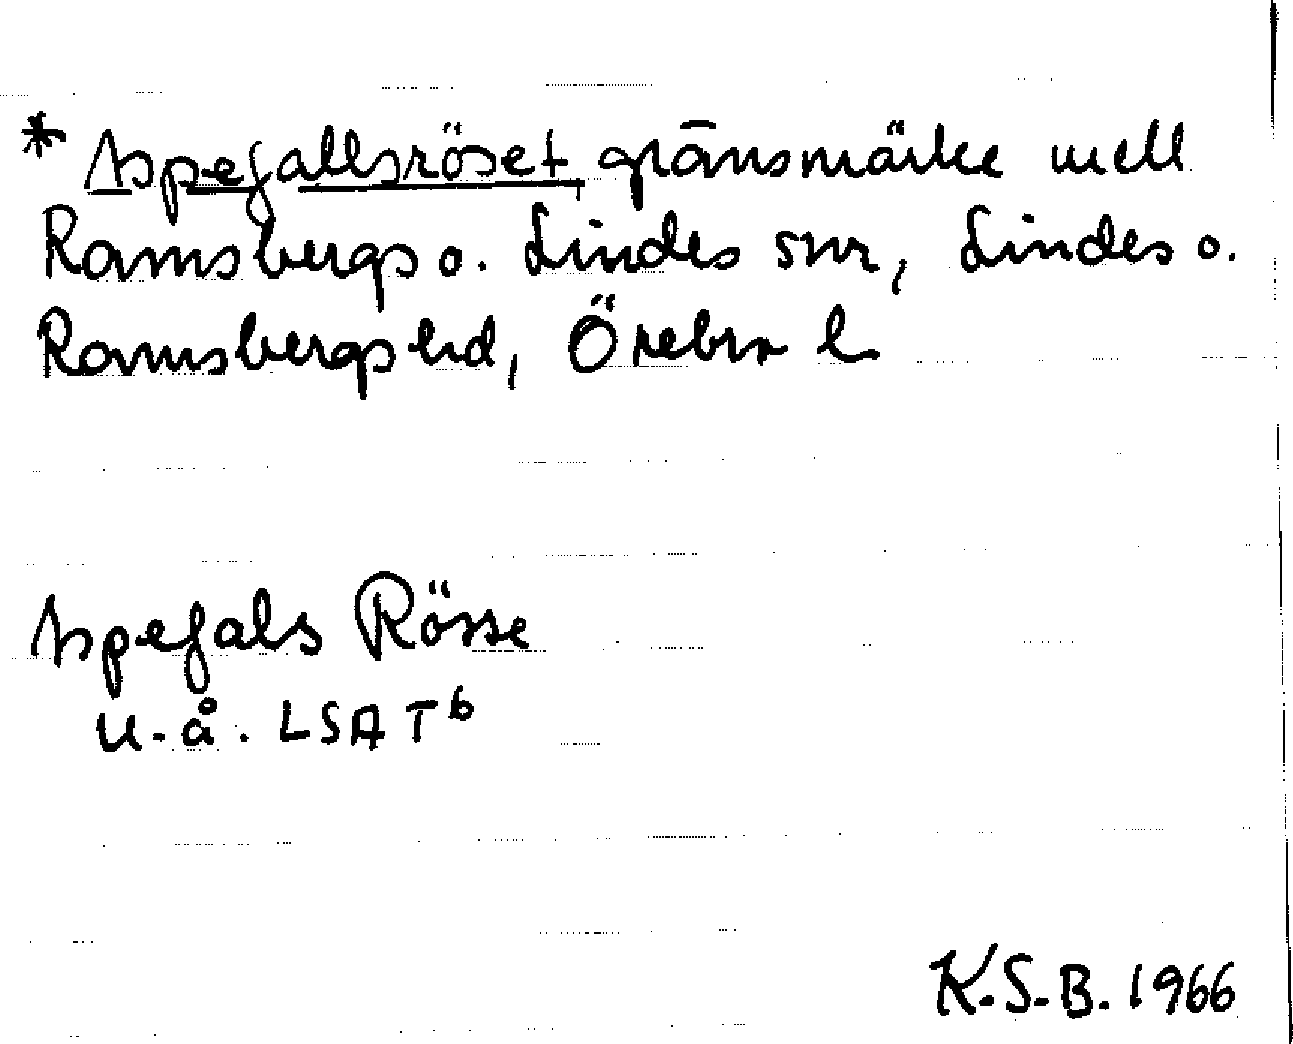 * Aspefallsröset gränsmärke mell
Ramsbergs o. Lindes snr, Lindes o.
Ramsbergs hd, Örebro l.
Aspefals Rösse
u. å. LSA T b
K.S.B. 1966